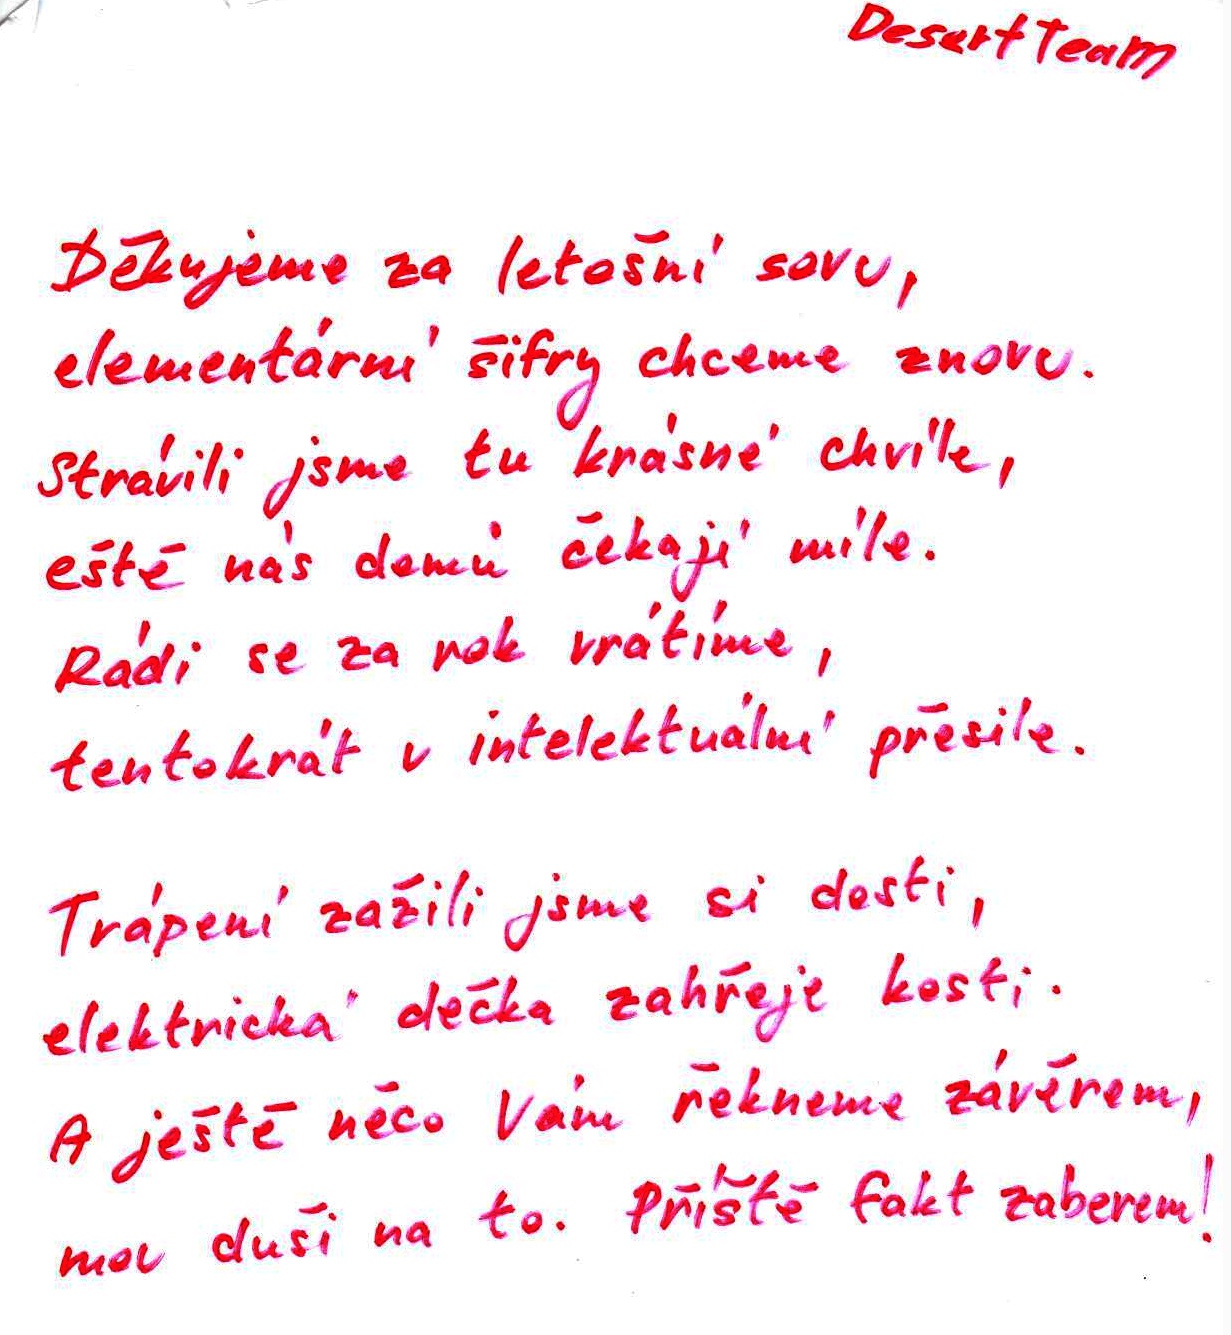 Desert Team
Děkujeme za letošní sovu,
elementární šifry chceme znovu.
Strávili jsme tu krásné chvíle,
eště nás domů čekají míle.
Rádi se za rok vrátíme,
tentokrát v intelektuální přesile.
Trápení zažili jsme si dosti,
elektrická dečka zahřeje kosti.
A ještě něco Vám řekneme závěrem,
mou duši na to. Příště fakt zaberem!